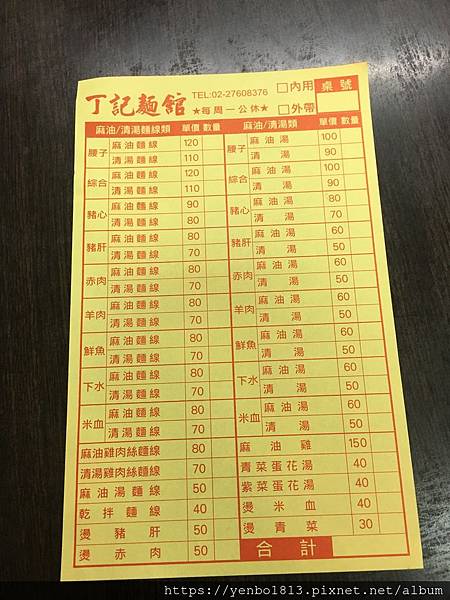 丁記麵館 TEL:02-27608376 □內用 桌號
★每周一公休★ □外帶
麻油/清湯麵線類 單價 數量
腰子 麻油麵線 120
清湯麵線 110
綜合 麻油麵線 120
清湯麵線 110
豬心 麻油麵線 90
清湯麵線 80
豬肝 麻油麵線 80
清湯麵線 70
赤肉 麻油麵線 80
清湯麵線 70
羊肉 麻油麵線 80
清湯麵線 70
鮮魚 麻油麵線 80
清湯麵線 70
下水 麻油麵線 80
清湯麵線 70
米血 麻油麵線 80
清湯麵線 70
麻油雞肉絲麵線 80
清湯雞肉絲麵線 70
麻油湯麵線 50
乾拌麵線 40
燙豬肝 50
燙赤肉 50
麻油/清湯類 單價 數量
腰子 麻油湯 100
清湯 90
綜合 麻油湯 100
清湯 90
豬心 麻油湯 80
清湯 70
豬肝 麻油湯 60
清湯 50
赤肉 麻油湯 60
清湯 50
羊肉 麻油湯 60
清湯 50
鮮魚 麻油湯 60
清湯 50
下水 麻油湯 60
清湯 50
米血 麻油湯 60
清湯 50
麻油雞 150
青菜蛋花湯 40
紫菜蛋花湯 40
燙米血 40
燙青菜 30
合計
https://yenbo1813.pixnet.net/album